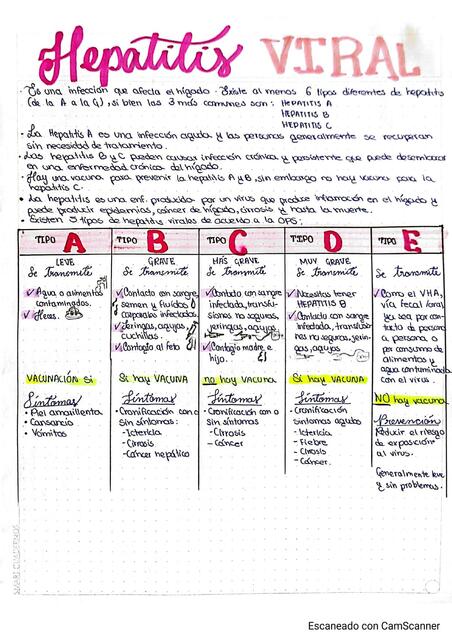 Hepatitis VIRAL
• Es una infección que afecta el hígado. Existe al menos 6 tipos diferentes de hepatitis
(de la A a la G), si bien las 3 más comunes son: HEPATITIS A
HEPATITIS B
HEPATITIS C
• La Hepatitis A es una infección aguda y las personas generalmente se recuperan
sin necesidad de tratamiento.
• Las hepatitis B y C pueden causar infección crónica y persistente que puede desembocar
en una enfermedad crónica del hígado.
• Hay una vacuna para prevenir la hepatitis A y B, sin embargo no hay vacuna para la
hepatitis C.
• La hepatitis es una enf. producida por un virus que produce inflamación en el hígado y
puede producir epidemias, cáncer de hígado, cirrosis y hasta la muerte.
• Existen 5 tipos de hepatitis virales de acuerdo a la OPS:
TIPO A
LEVE
Se transmite
✓ Agua o alimentos
contaminados.
✓ Heces.
VACUNACIÓN Sí
Síntomas
• Piel amarillenta
• Cansancio
• Vómitos
TIPO B
GRAVE
Se transmite
✓ Contacto con sangre,
semen y fluidos
corporales infectados.
✓ Jeringas, agujas
cuchillas.
✓ Contagio al feto
Si hay VACUNA
Síntomas
• Cronificación con o
sin síntomas:
- Ictericia
- Cirosis
- Cáncer hepático
TIPO C
MÁS GRAVE
Se transmite
✓ Contacto con sangre
infectada, transfu-
siones no seguras,
jeringas, agujas
✓ Contagio madre e
hijo.
no hay vacuna
Síntomas
• Cronificación con o
Sin síntomas
- Cirrosis
- Cáncer
TIPO D
MUY GRAVE
Se transmite
✓ Necesitas tener
HEPATITIS B
✓ Contacto con sangre
infectada, transfusio-
nes no seguras, jerin-
gas, agujas
Si hay VACUNA
Síntomas
• Cronificación
síntomas agudos
- Ictericia
- Fiebre
- Cirosis
- Cáncer.
TIPO E
Se transmite
✓ Como el VHA,
vía fecal (oral)
ya sea por con-
tacto de persona
a persona o
por consumo de
alimentos y
agua contaminada
con el virus.
NO hay vacuna
Prevención
Reducir el riesgo
de exposición
al virus.
Generalmente leve
y sin problemas.
Escaneado con CamScanner